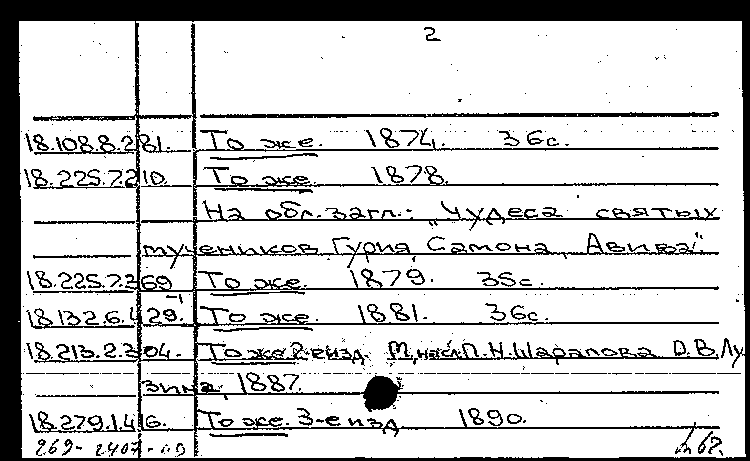 2
18.108.8.281. То же. 1874. 36с.
18.225.7.210. То же 1878.
На обл. загл.: „Чудеса святых
мучеников Гурия, Самона, Авива".
18.225.7.369 То же. 1879. 35с.
18.132.6.429.-1 То же. 1881. 36с.
18.213.2.304. То же. 2-е изд. М, насл. П. Н. Шарапова О. В. Лу
зина, 1887.
18.279.1.416. То же. 3-е изд 1890.
269-2407-